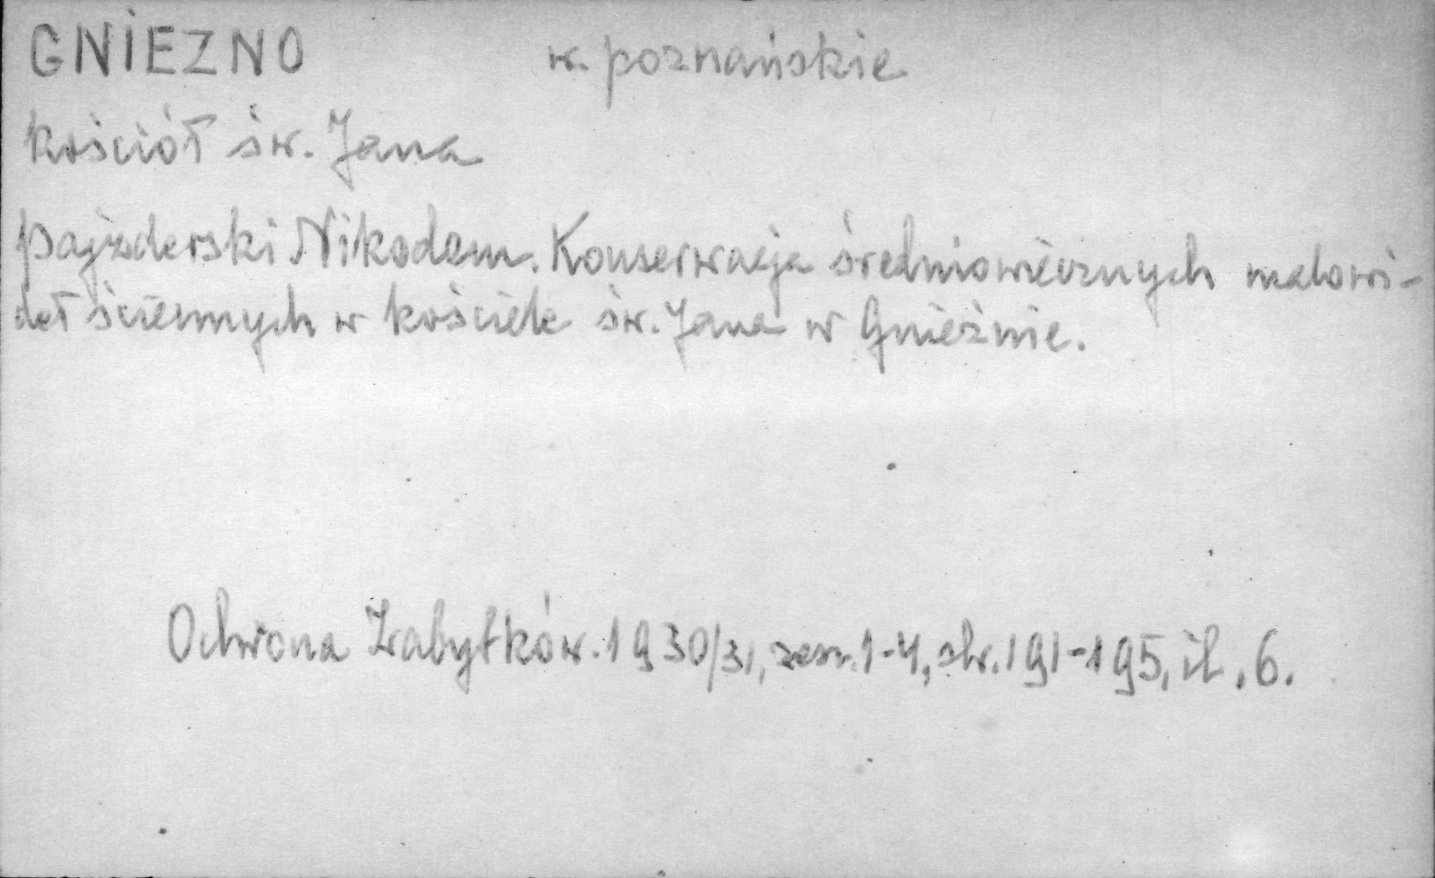 GNIEZNO w. poznańskie
Kościół św. Jana
Pajzderski Nikodem. Konserwacja średniowiecznych malowi-
deł ściennych w kościele św. Jana w Gnieźnie.
Ochrona Zabytków. 1930/31, zesz. 1-4, str. 191-195, il. 6.